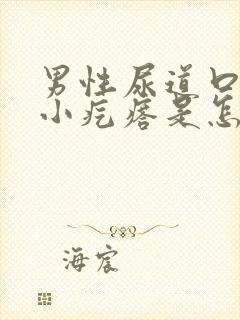 男性尿道口
小疙瘩是怎
海宸